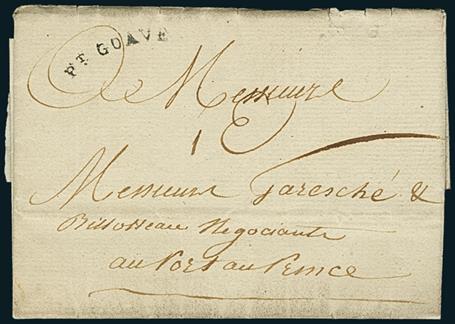 Pt GOAVE
A Messieurs
1
Messieurs Garesché &
Billoteau Negociants
au Port au Prince